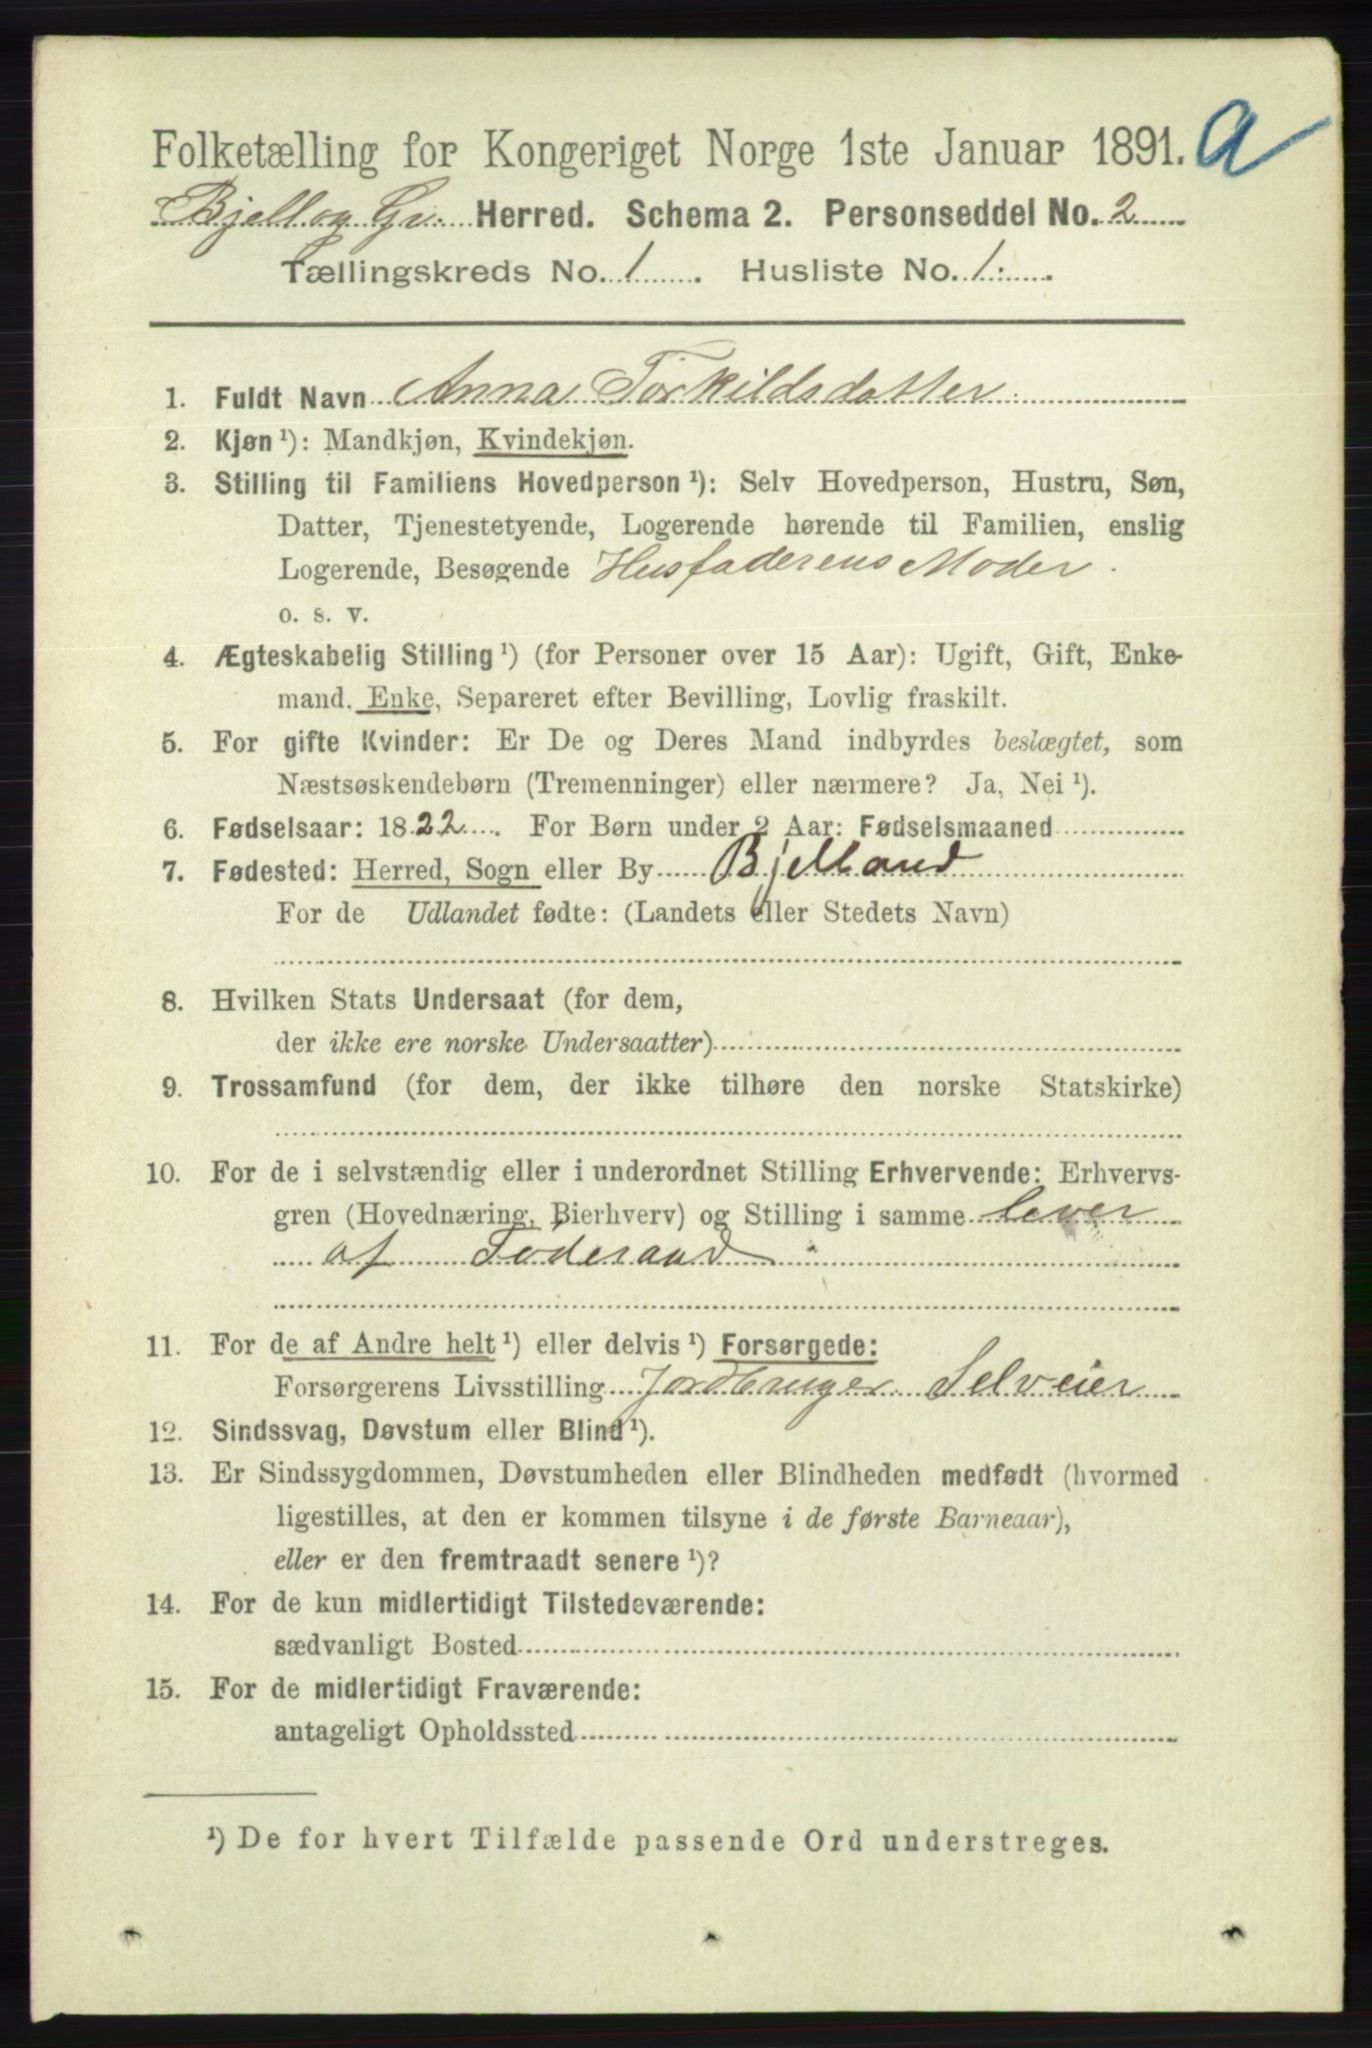 Folketælling for Kongeriget Norge 1ste Januar 1891. a
Bjell og Gr. Herred. Schema 2. Personseddel No. 2
Tællingskreds No. 1 . Husliste No. 1.
1. Fuldt Navn Anna Torkildsdatter
2. Kjøn ¹): Mandkjøn, Kvindekjøn.
3. Stilling til Familiens Hovedperson ¹): Selv Hovedperson, Hustru, Søn,
Datter, Tjenestetyende, Logerende hørende til Familien, enslig
Logerende, Besøgende Husfaderens Moder.
o. s. v.
4. Ægteskabelig Stilling ¹) (for Personer over 15 Aar): Ugift, Gift, Enke-
mand, Enke, Separeret efter Bevilling, Lovlig fraskilt.
5. For gifte Kvinder: Er De og Deres Mand indbyrdes beslægtet, som
Næstsøskendebørn (Tremenninger) eller nærmere? Ja, Nei ¹).
6. Fødselsaar: 1822. For Børn under 2 Aar: Fødselsmaaned
7. Fødested: Herred, Sogn eller By Bjelland
For de Udlandet fødte: (Landets eller Stedets Navn)
8. Hvilken Stats Undersaat (for dem,
der ikke ere norske Undersaatter)
9. Trossamfund (for dem, der ikke tilhøre den norske Statskirke)
10. For de i selvstændig eller i underordnet Stilling Erhvervende: Erhvervs-
gren (Hovednæring, Bierhverv) og Stilling i samme lever
af Føderaad
11. For de af Andre helt ¹) eller delvis ¹) Forsørgede:
Forsørgerens Livsstilling Jordbruger Selveier
12. Sindssvag, Døvstum eller Blind ¹).
13. Er Sindssygdommen, Døvstumheden eller Blindheden medfødt (hvormed
ligestilles, at den er kommen tilsyne i de første Barneaar),
eller er den fremtraadt senere ¹)?
14. For de kun midlertidigt Tilstedeværende:
sædvanligt Bosted
15. For de midlertidigt Fraværende:
antageligt Opholdssted
¹) De for hvert Tilfælde passende Ord understreges.